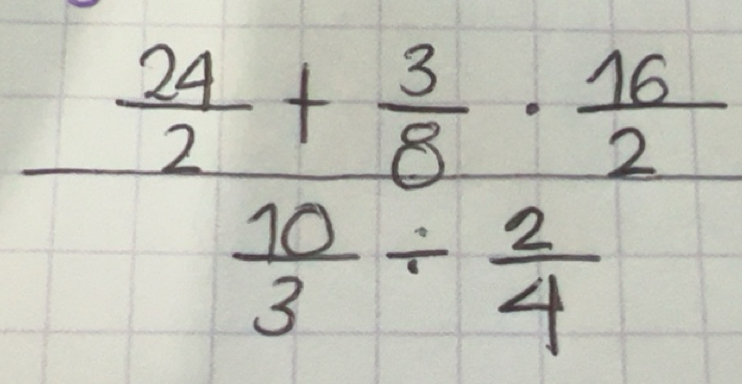 24/2 + 3/8 · 16/2
10/3 ÷ 2/4